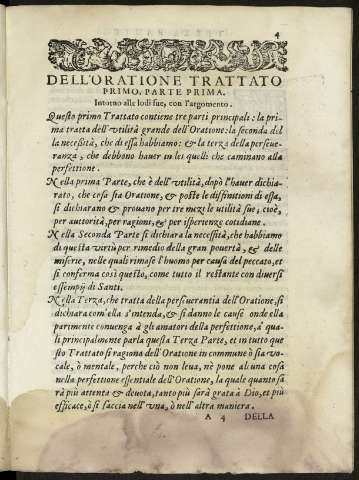 4
DELL'ORATIONE TRATTATO
PRIMO, PARTE PRIMA.
Intorno alle lodi sue, con l'argomento.
Questo primo Trattato contiene tre parti principali: la pri
ma tratta dell'vtilità grande dell'Oratione: la seconda del
la necessità, che di essa habbiamo: & la terza della perseue-
ranza, che debbono hauer in lei quelli che caminano alla
perfettione.
Nella prima Parte, che è dell'vtilità, dopò l'hauer dichia-
rato, che cosa sia Oratione, & poste le diffinitioni di essa,
si dichiarano & prouano per tre mezi le vtilità sue, cioè,
per auttorità, per ragioni, & per isperienze cotidiane.
Nella Seconda Parte si dichiara la necessità, che habbiamo
di questa virtù per rimedio della gran pouertà, & delle
miserie, nelle quali rimase l'huomo per causa del peccato, et
si conferma così questo, come tutto il restante con diuersi
essempij di Santi.
Nella Terza, che tratta della perseuerantia dell'Oratione, si
dichiara com'ella s'intenda, & si danno le cause onde ella
parimente conuenga à gli amatori della perfettione, à qua
li principalmente parla questa Terza Parte, et in tutto que
sto Trattato si ragiona dell'Oratione in commune ò sia vo-
cale, ò mentale, perche ciò non leua, nè pone alcuna cosa
nella perfettione essentiale dell'Oratione, la quale quanto sa
rà più attenta & deuota, tanto più sarà grata à Dio, et più
efficace, ò si faccia nell'vna, ò nell'altra maniera.
A 4 DELLA